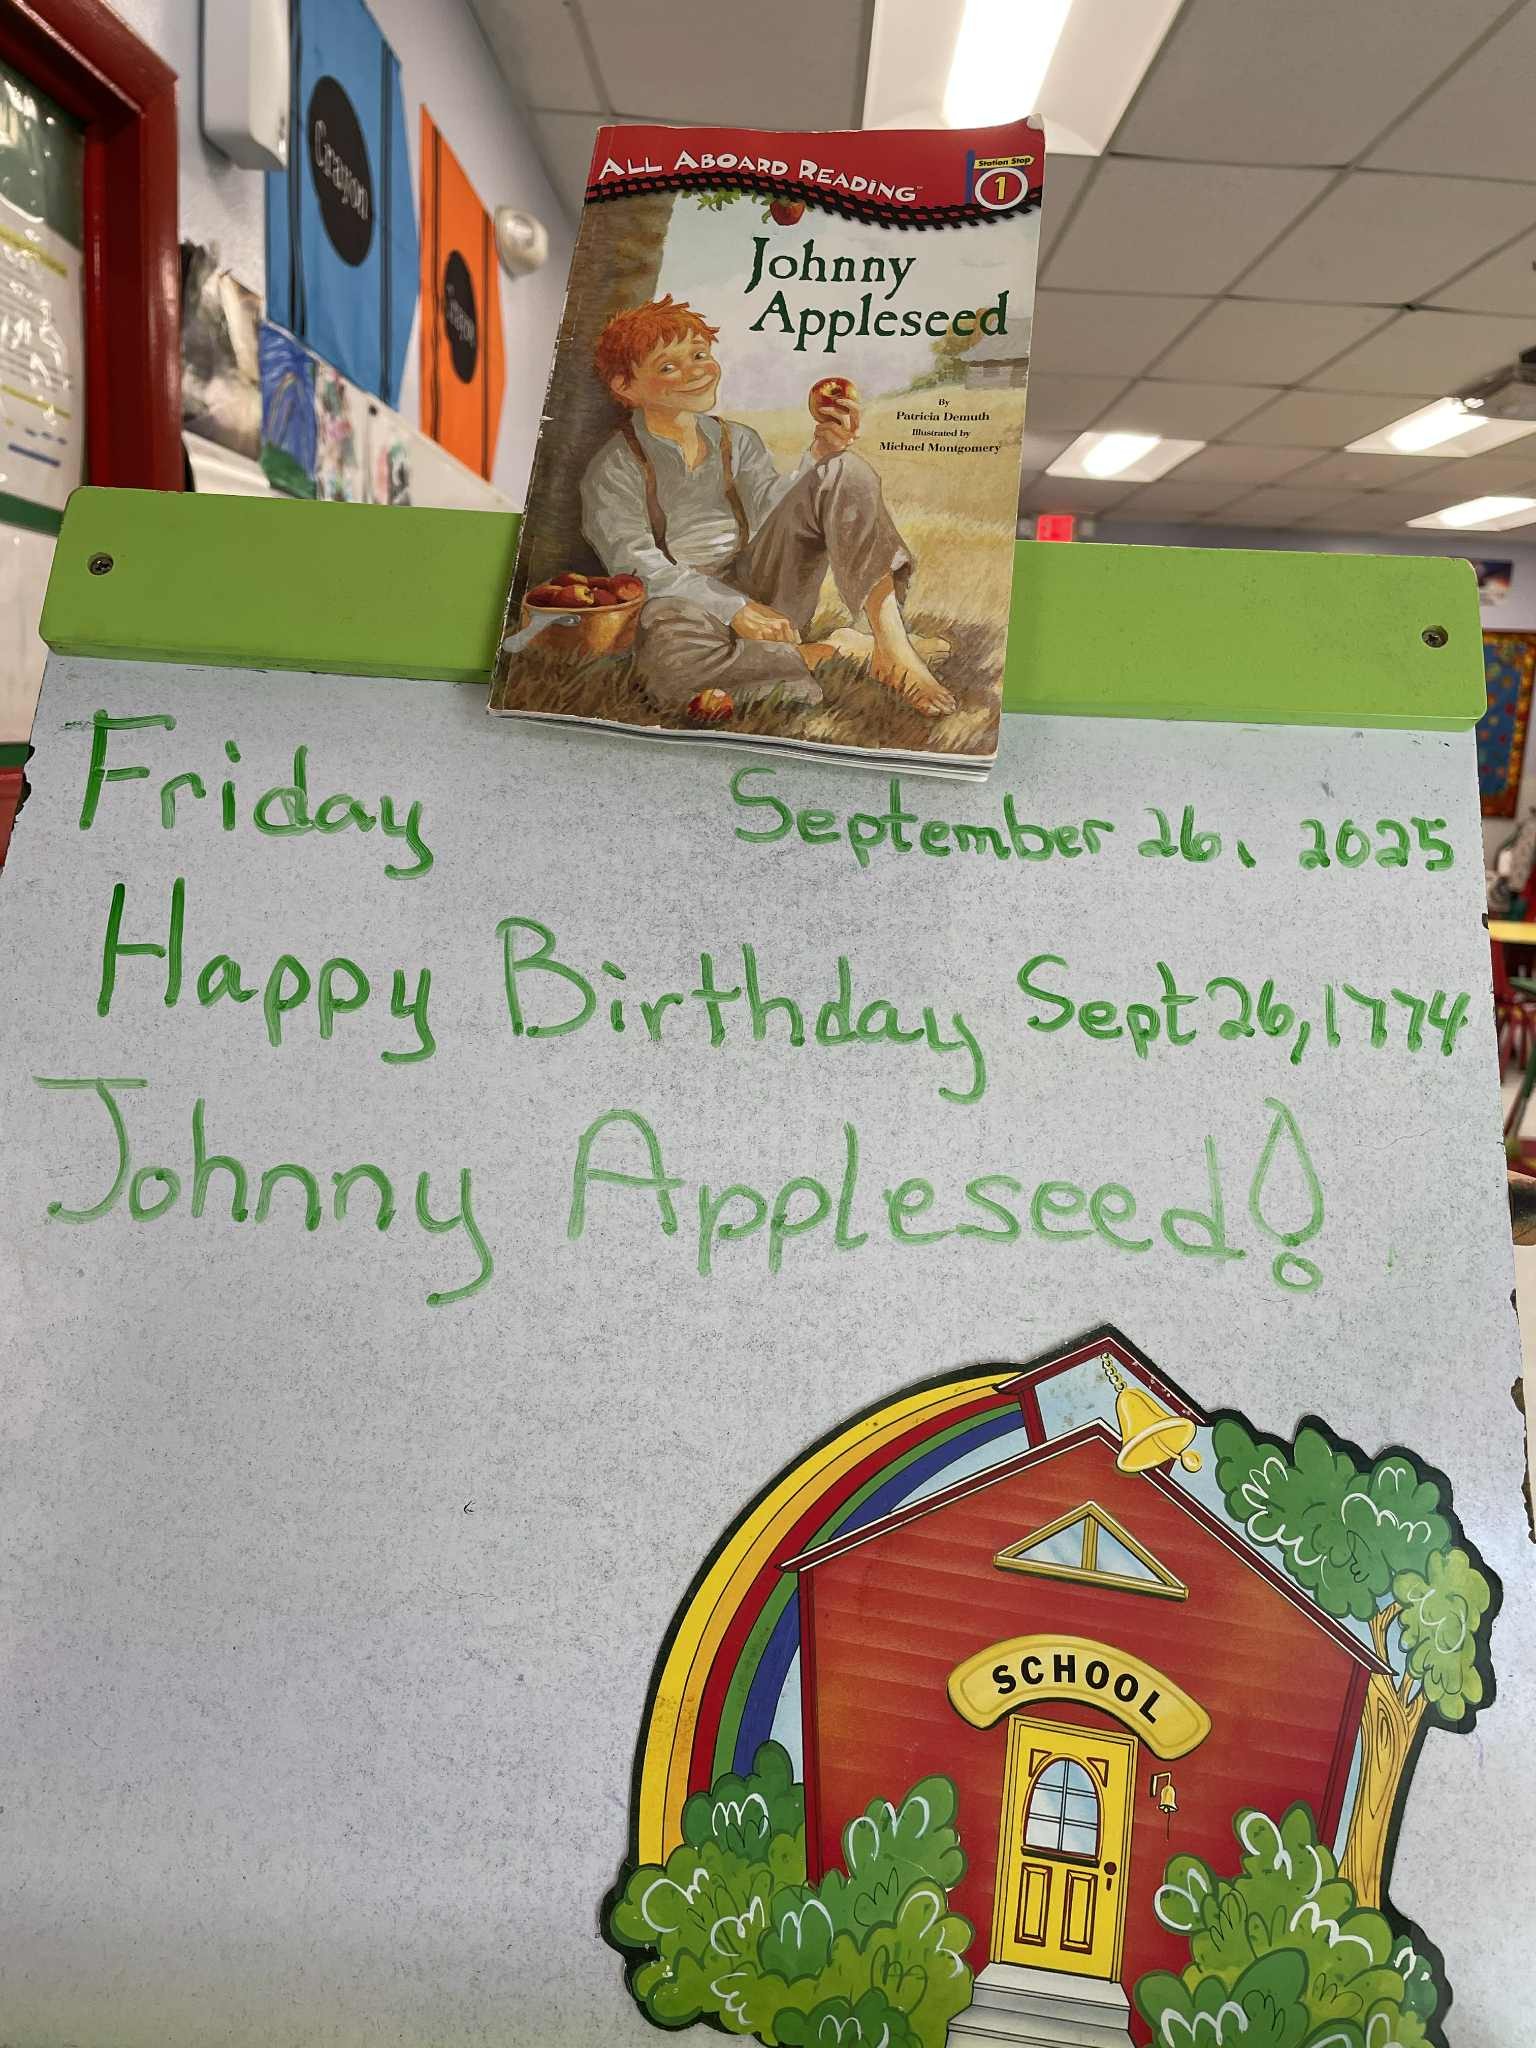 Crayon
ALL ABOARD READING™
Station Stop
1
Johnny
Appleseed
By
Patricia Demuth
Illustrated by
Michael Montgomery
Friday September 26, 2025
Happy Birthday Sept 26, 1774
Johnny Appleseed!
SCHOOL